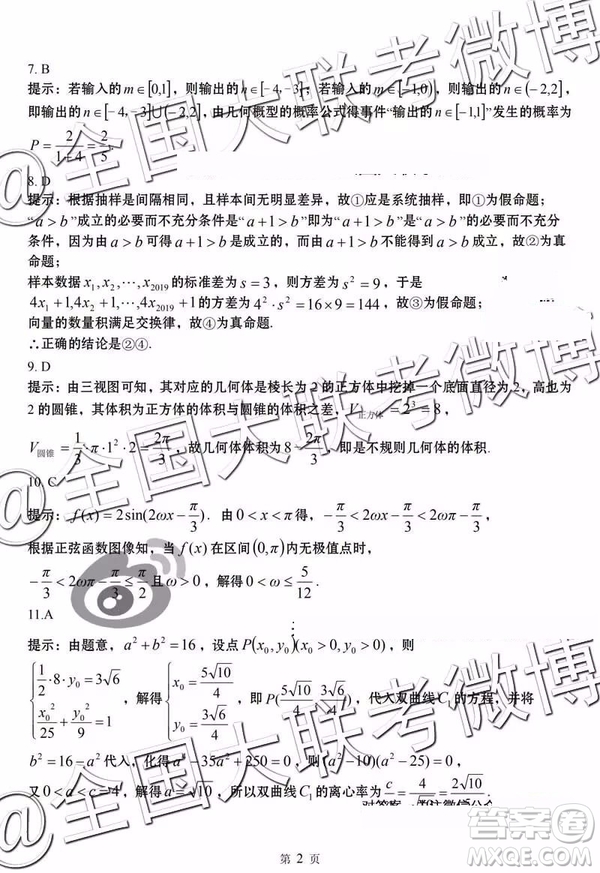 7. B
提示：若输入的 m∈[0,1]，则输出的 n∈[-4,-3]；若输入的 m∈[-1,0)，则输出的 n∈(-2,2]，
即输出的 n∈[-4,-3]∪(-2,2]，由几何概型的概率公式得事件“输出的 n∈[-1,1]”发生的概率为
P=2/(1+4)=2/5.
8. D
提示：根据抽样是间隔相同，且样本间无明显差异，故①应是系统抽样，即①为假命题；
“a>b”成立的必要而不充分条件是“a+1>b”即为“a+1>b”的必要而不充分
条件，因为由 a>b 可得 a+1>b 是成立的，而由 a+1>b 不能得到 a>b 成立，故②为真
命题；
样本数据 x₁,x₂,⋯,x₂₀₁₉ 的标准差为 s=3，则方差为 s²=9，于是
4x₁+1,4x₂+1,⋯,4x₂₀₁₉+1 的方差为 4²·s²=16×9=144，故③为假命题；
向量的数量积满足交换律，故④为真命题.
∴正确的结论是②④.
9. D
提示：由三视图可知，其对应的几何体是棱长为 2 的正方体中挖掉一个底面直径为 2，高也为
2 的圆锥，其体积为正方体的体积与圆锥的体积之差，V正方体=2³=8，
V圆锥=1/3·π·1²·2=2π/3，故几何体体积为 8-2π/3，即是不规则几何体的体积.
10. C
提示：f(x)=2sin(2ωx-π/3)．由 0<x<π 得，-π/3<2ωx-π/3<2ωπ-π/3，
根据正弦函数图像知，当 f(x) 在区间(0,π)内无极值点时，
-π/3<2ωπ-π/3≤π/2 且 ω>0，解得 0<ω≤5/12.
11.A
提示：由题意，a²+b²=16，设点 P(x₀,y₀)(x₀>0,y₀>0)，则
{1/2·8·y₀=3√6, x₀²/25+y₀²/9=1，解得 {x₀=5√10/4, y₀=3√6/4，即 P(5√10/4, 3√6/4)，代入双曲线 C₁ 的方程，并将
b²=16-a² 代入，化得 a⁴-35a²+250=0，即(a²-10)(a²-25)=0，
又 0<a<c=4，解得 a=√10，所以双曲线 C₁ 的离心率为 c/a=4/√10=2√10/5
第 2 页
@全国大联考微博
@全国大联考微博
@全国大联考微博
答案卷
MXQE.COM